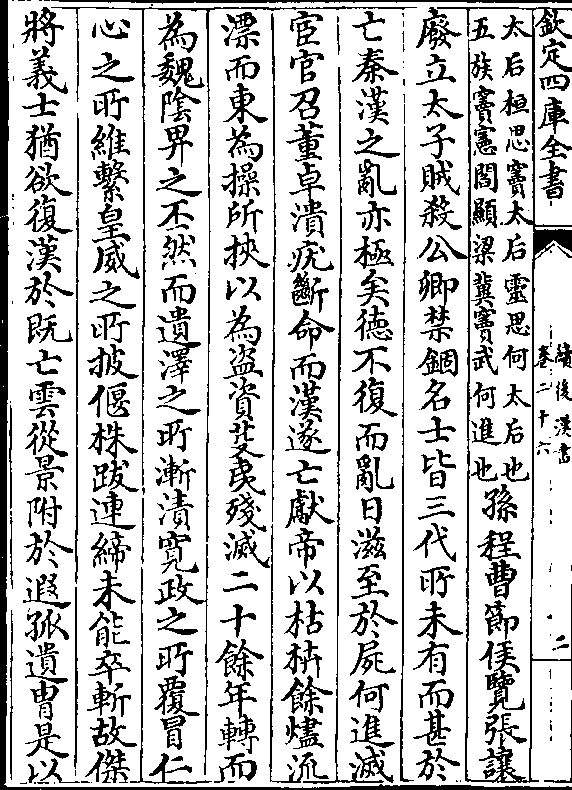 欽定四庫全書
續後漢書
卷二十六
二
太后桓思竇太后靈思何太后也
五族竇憲閻顯梁冀竇武何進也
孫程曹節侯覽張讓
廢立太子賊殺公卿禁錮名士皆三代所未有而甚於
亡秦漢之亂亦極矣德不復而亂日滋至於屍何進滅
宦官召董卓潰疣斷命而漢遂亡獻帝以枯枿餘燼流
漂而東為操所挾以為盜資芟夷殘滅二十餘年轉而
為魏陰畀之丕然而遺澤之所漸漬寛政之所覆冒仁
心之所維繫皇威之所披偃株跋連締未能卒斬故傑
將義士猶欲復漢於既亡雲從景附於遐孤遺胄是以